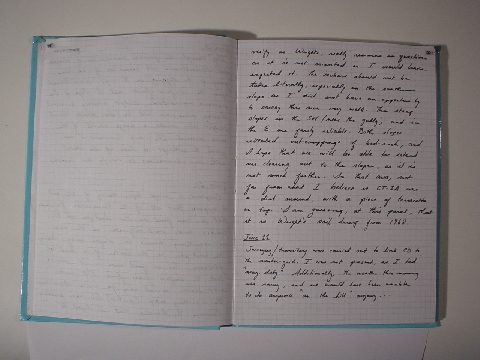 verify as Wright's, really remains in question
as it is not oriented as I would have
expected it. The contours should not be
taken literally, especially on the south
slope as I did not have an opportunity
to survey this area very well. The steep
slopes in the SW, the gully, and in
the E are fairly reliable. Both slopes
revealed outcroppings of bed-rock, and
I hope that we will be able to extend
our clearing out to the slope, as it is
not much further. In that area, not
far from what I believe is CT-2A was
a dirt mound, with a piece of terracotta
on top. I am guessing, at this point, that
it is Wright's soil dump from 1968
June 22
Surveying/traversing was carried out to link CB to
the master grid. I was not present, as I had
"away duty". Additionally, the weather this morning
was rainy, and we would have been unable
to do anything "on the hill" anyway...